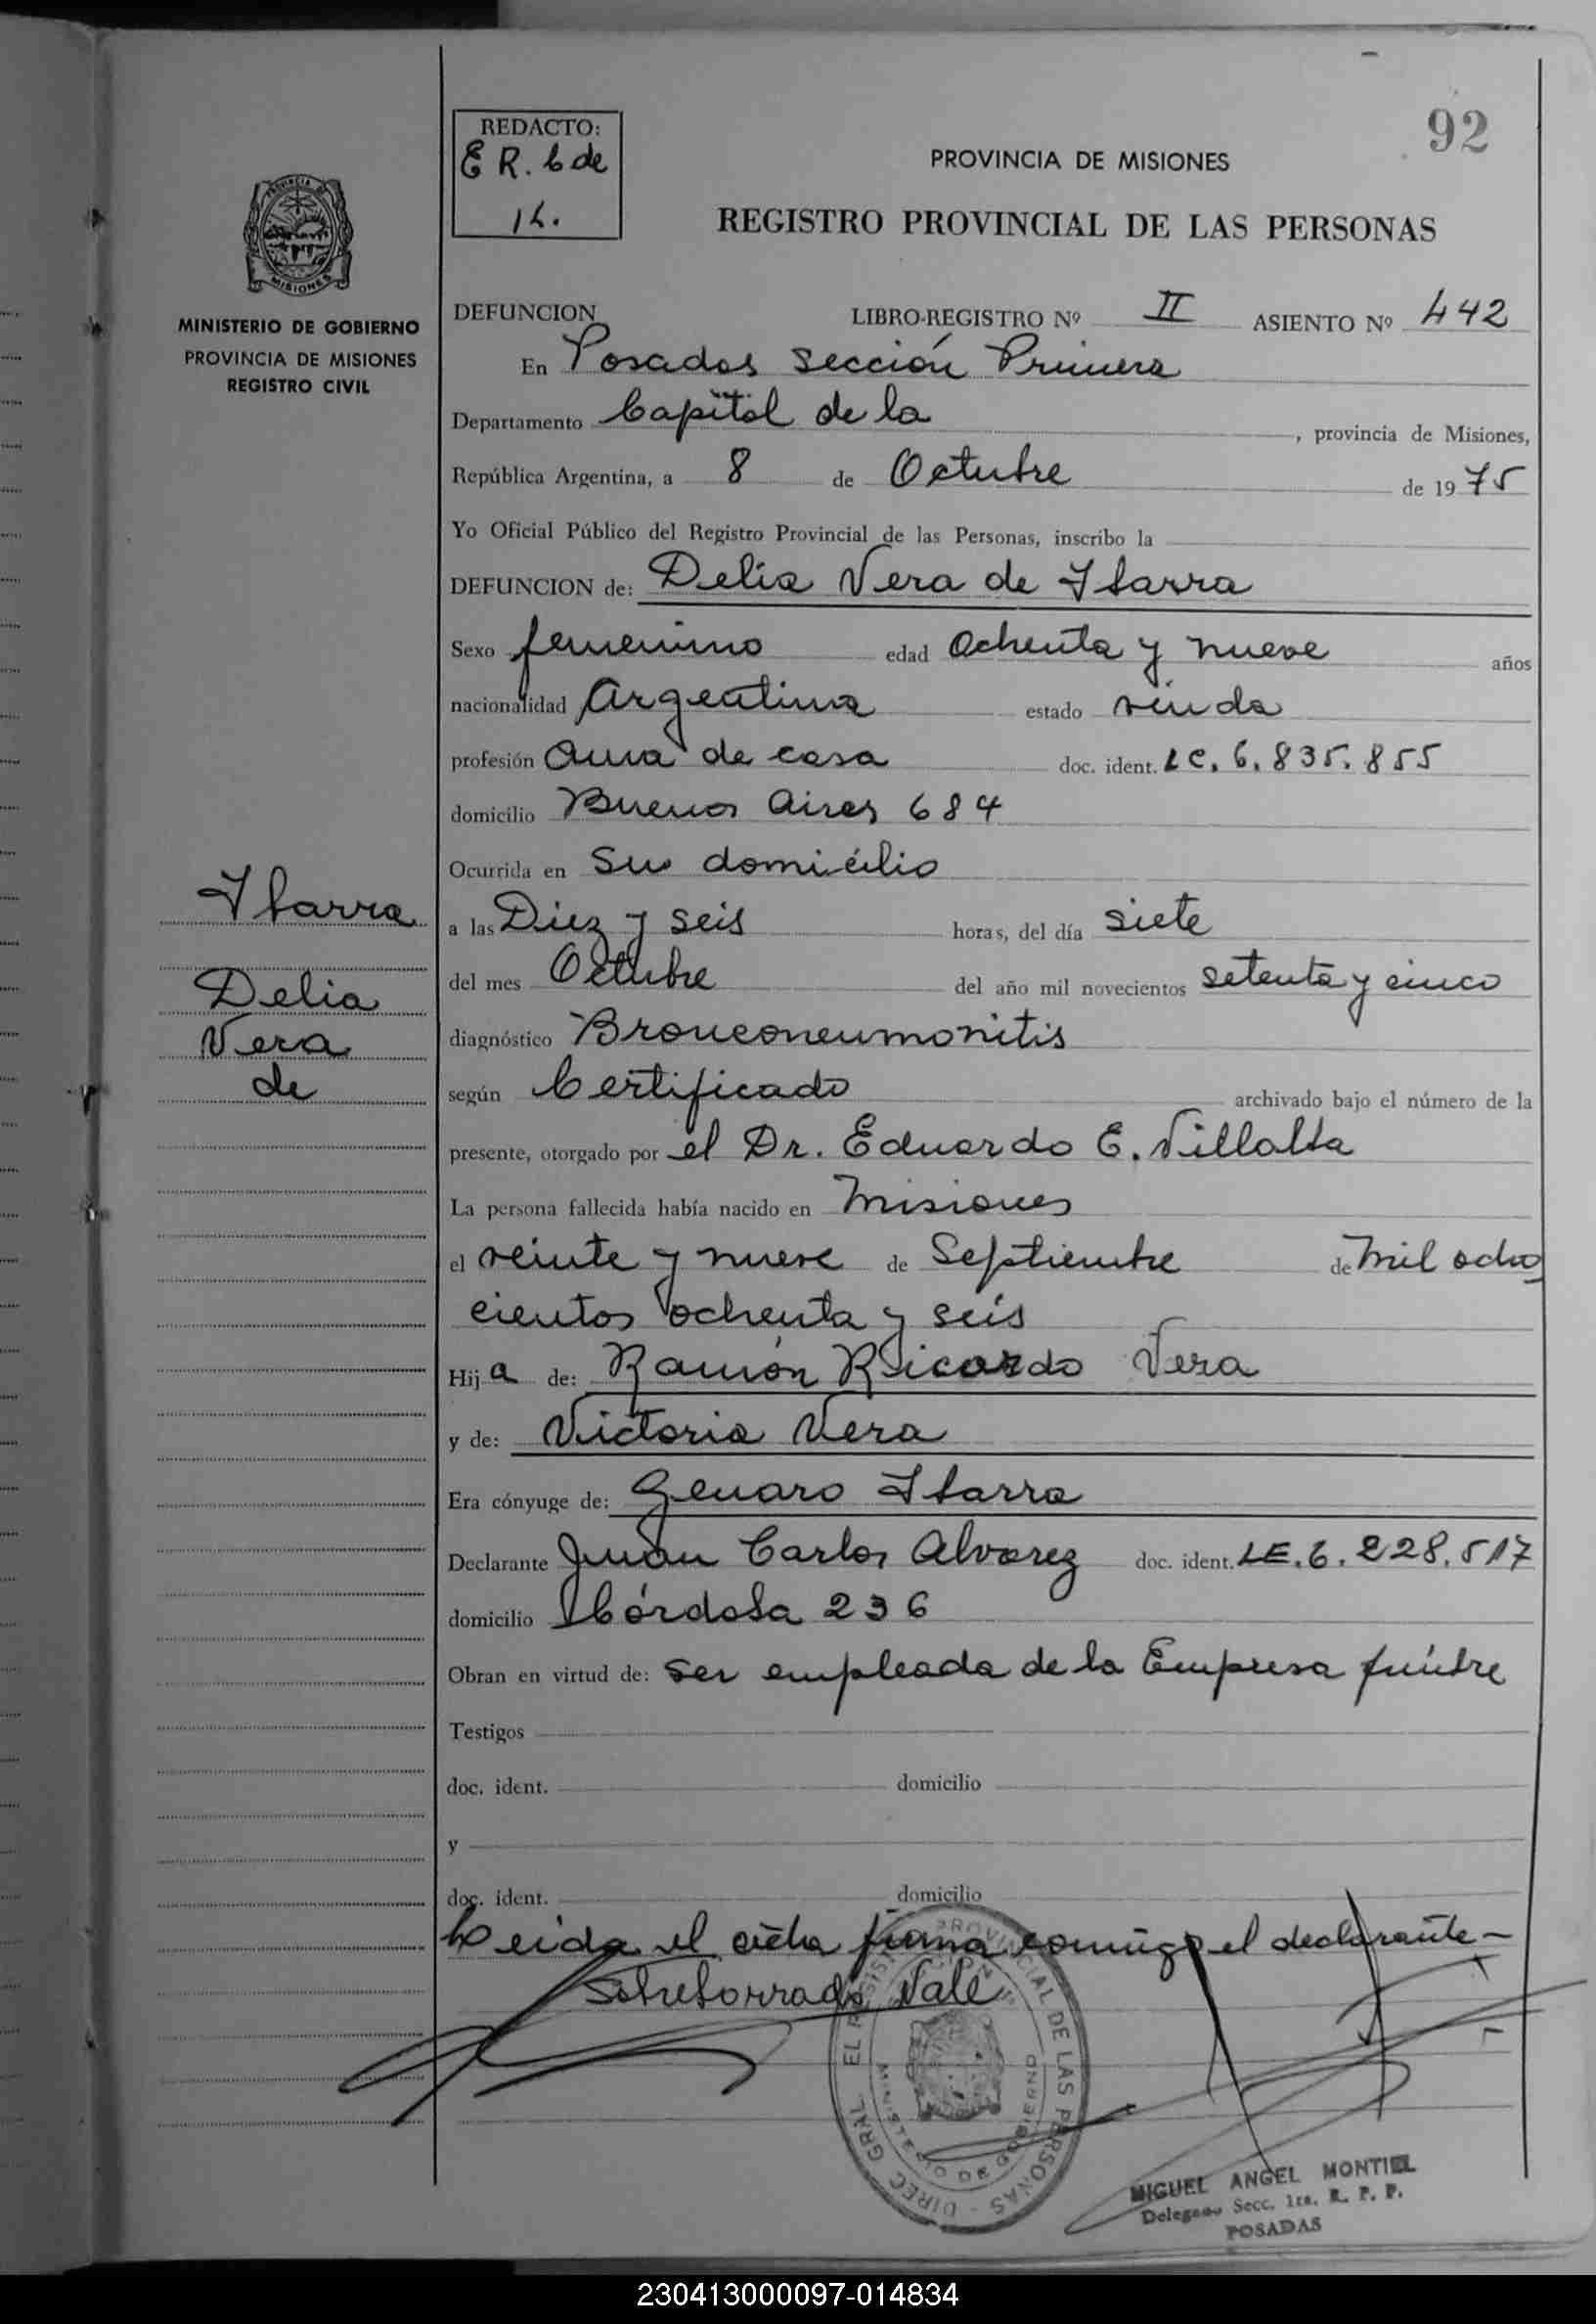 92
REDACTO:
E R. G de
PROVINCIA DE MISIONES
REGISTRO PROVINCIAL DE LAS PERSONAS
PROVINCIA DE
MISIONES
MINISTERIO DE GOBIERNO
PROVINCIA DE MISIONES
REGISTRO CIVIL
DEFUNCION LIBRO-REGISTRO Nº II ASIENTO Nº 442
En Posadas Sección Primera
Departamento Capital de la , provincia de Misiones,
República Argentina, a 8 de Octubre de 1975
Yo Oficial Público del Registro Provincial de las Personas, inscribo la
DEFUNCION de: Delia Vera de Ibarra
Sexo femenino edad Ochenta y nueve años
nacionalidad Argentina estado viuda
profesión Ama de casa doc. ident. LC. 6.835.855
domicilio Buenos Aires 684
Ocurrida en Su domicilio
a las Diez y seis horas, del día siete
del mes Octubre del año mil novecientos setenta y cinco
diagnóstico Bronconeumonitis
según Certificado archivado bajo el número de la
presente, otorgado por el Dr. Eduardo E. Villalba
La persona fallecida había nacido en Misiones
el veinte y nueve de Septiembre de Mil ocho
cientos ochenta y seis
Hija de: Ramón Ricardo Vera
y de: Victoria Vera
Era cónyuge de: Genaro Ibarra
Declarante Juan Carlos Alvarez doc. ident. LE. 6.228.517
domicilio Córdoba 236
Obran en virtud de: ser empleada de la Empresa fúnebre
Testigos
doc. ident. domicilio
y
doc. ident. domicilio
Leida el acta firma conmigo el declarante-
Sobreborrado Vale
Ibarra
Delia
Vera
de
DIREC. GRAL. EL REGISTRO PROVINCIAL DE LAS PERSONAS
MINISTERIO DE GOBIERNO
MIGUEL ANGEL MONTIEL
Delegado Secc. 1ra. R. P. P.
POSADAS
230413000097-014834